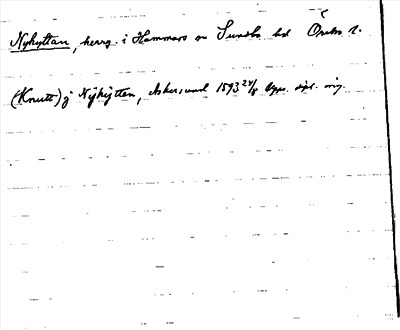 Nyhyttan, herrg. i Hammars sn Sundbo hd Örebro l.
(Knutt) j Nÿhÿtten, Askersund 1593 24/8 Uppr. dipl. orig.